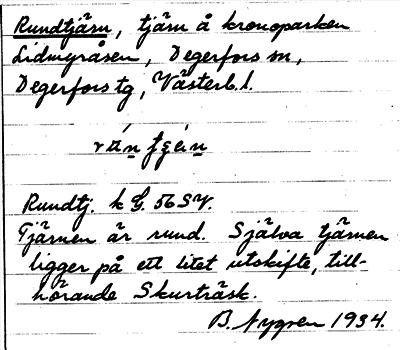 Rundtjärn, tjärn å kronoparken
Lidmyråsen, Degerfors sn,
Degerfors tg, Västerb. l.
Rundtj. k G. 56 SV.
Tjärnen är rund. Själva tjärnen
ligger på ett litet utskifte, till-
hörande Skurträsk.
B. Nygren 1934.